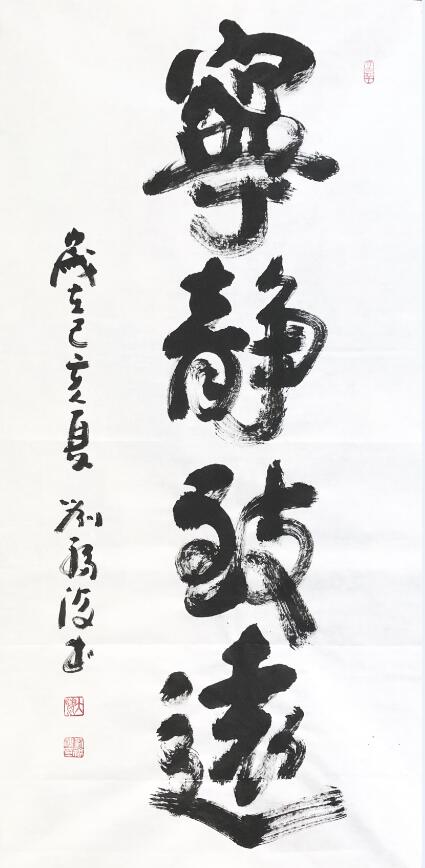 寧静致遠
歲在己亥夏 劉 書